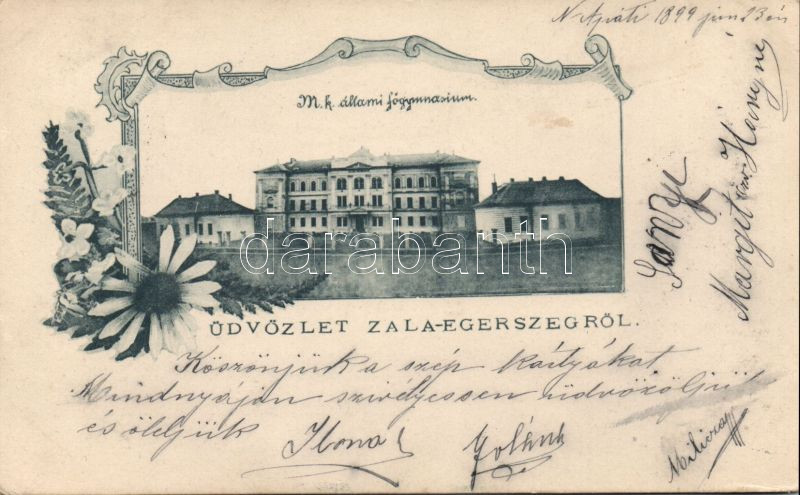 1899 jun 23 án
M. k. állami főgymnasium.
darabanth
ÜDVÖZLET ZALA-EGERSZEGRŐL.
Köszönjük a szép kártyákat
Mindnyájan szívélyessen üdvözöljük
és öleljük Ilona Jolánk
Margit
Milicza